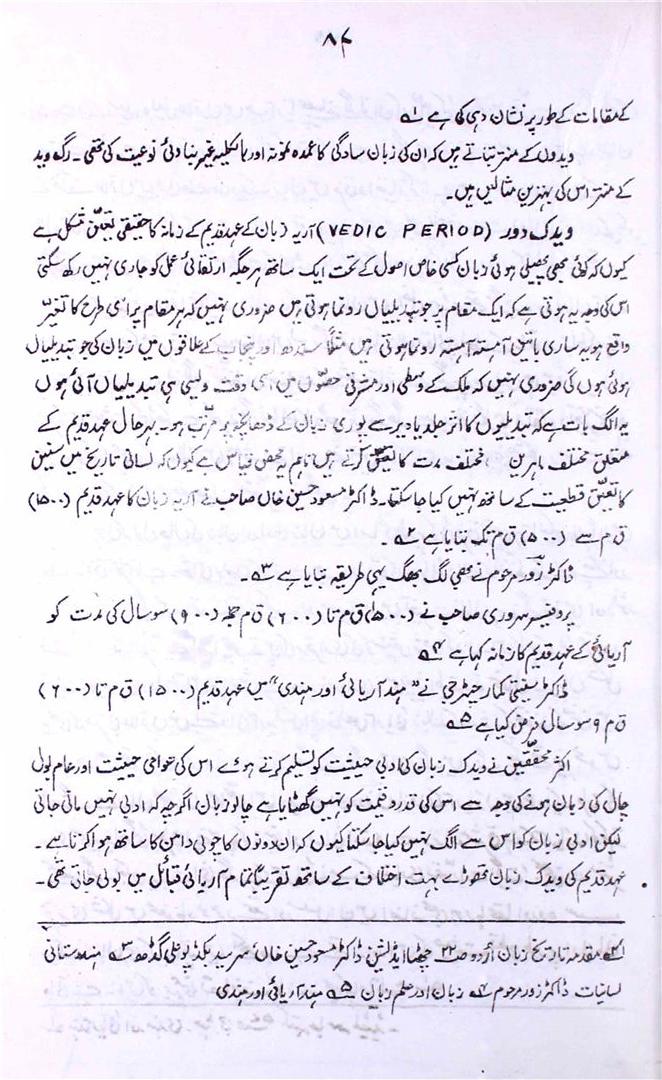 ۸۴
کے مقامات کے طور پر نشان دہی کی ہے ۱؎
ویدوں کے منتر بتاتے ہیں کہ ان کی زبان سادگی کا عمدہ نمونہ اور بالکلیہ غیر بناوٹی نوعیت کی تھی ۔ رگ وید
کے منتر اس کی بہترین مثالیں ہیں۔
ویدک دور (VEDIC PERIOD) آریہ زبان کے عہد قدیم کے زمانہ کا حقیقی تعیّن مشکل ہے
کیوں کہ کوئی بھی پھیلی ہوئی زبان کسی خاص اصول کے تحت ایک ساتھ ہر جگہ ارتقائی عمل کو جاری نہیں رکھ سکتی
اس کی وجہ یہ ہوتی ہے کہ ایک مقام پر جو تبدیلیاں رونما ہوتی ہیں ضروری نہیں کہ ہر مقام پر اسی طرح کا تغیّر
واقع ہو یہ ساری باتیں آہستہ آہستہ رونما ہوتی ہیں مثلاً سندھ اور پنجاب کے علاقوں میں زبان کی جو تبدیلیاں
ہوئی ہوں گی ضروری نہیں کہ ملک کے وسطی اور مشرقی حصّوں میں اسی وقت ویسی ہی تبدیلیاں آئی ہوں
یہ الگ بات ہے کہ تبدیلیوں کا اثر جلد یا دیر سے پوری زبان کے ڈھانچہ پر مرتب ہو۔ بہر حال عہد قدیم کے
متعلق مختلف ماہرین مختلف مدت کا تعیّن کرتے ہیں تاہم یہ محض قیاس ہے کیوں کہ لسانی تاریخ میں سنین
کا تعیّن قطعیت کے ساتھ نہیں کیا جا سکتا۔ ڈاکٹر مسعود حسین خاں صاحب نے آریہ زبان کا عہد قدیم (۱۵۰۰)
ق م سے (۵۰۰) ق م تک بتایا ہے ۲؎
ڈاکٹر زورؔ مرحوم نے بھی لگ بھگ یہی طریقہ بتایا ہے ۳؎
پروفیسر سروری صاحب نے (۱۵۰۰) ق م تا (۶۰۰) ق م جملہ (۹۰۰) سو سال کی مدت کو
آریائی کے عہد قدیم کا زمانہ کہا ہے ۴؎
ڈاکٹر سنیتی کمار چیٹرجی نے "ہند آریائی اور ہندی" میں عہد قدیم (۱۵۰۰) ق م تا (۶۰۰)
ق م ۹ سو سال فرض کیا ہے ۵؎
اکثر محققین نے ویدک زبان کی ادبی حیثیت کو تسلیم کرتے ہوئے اس کی عوامی حیثیت اور عام بول
چال کی زبان ہونے کی وجہ سے اس کی قدر و قیمت کو نہیں گھٹایا ہے چالو زبان، اگرچہ کہ ادبی نہیں مانی جاتی
لیکن ادبی زبان کو اس سے الگ نہیں کیا جا سکتا کیوں کہ ان دونوں کا چولی دامن کا ساتھ ہوا کرتا ہے ۔
عہد قدیم کی ویدک زبان تھوڑے بہت اختلاف کے ساتھ تقریباً تمام آریائی قبائل میں بولی جاتی تھی ۔
۲؎ مقدمہ تاریخ زبان اردو چھٹا ایڈیشن ڈاکٹر مسعود حسین خاں سرسید بکڈپو علی گڈھ ۳؎ ہندوستانی
لسانیات ڈاکٹر زور مرحوم ۴؎ زبان اور علم زبان ۵؎ ہند آریائی اور ہندی